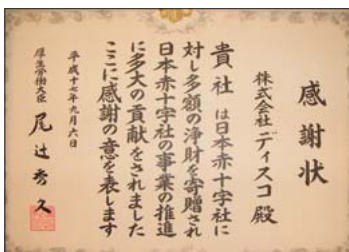 感謝状
株式会社ディスコ殿
貴社は日本赤十字社に
対し多額の浄財を寄贈され
日本赤十字社の事業の推進
に多大の貢献をされました
ここに感謝の意を表します
平成十七年九月六日
厚生労働大臣 尾辻秀久